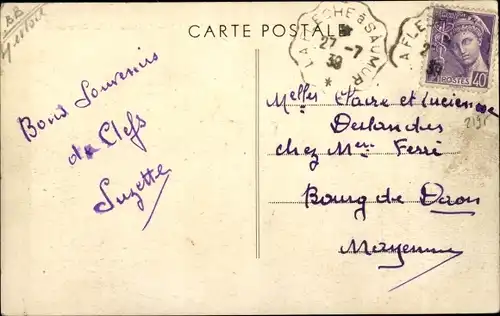 CARTE POSTALE
LA FLECHE à SAUMUR
27-7
39
LA FLE
2
39
POSTES 40
Bons Souvenirs
de Clefs
Suzette
Melles Claire et Lucienne
Deslandes
chez Mme Ferré
Bourg de Daon
Mayenne